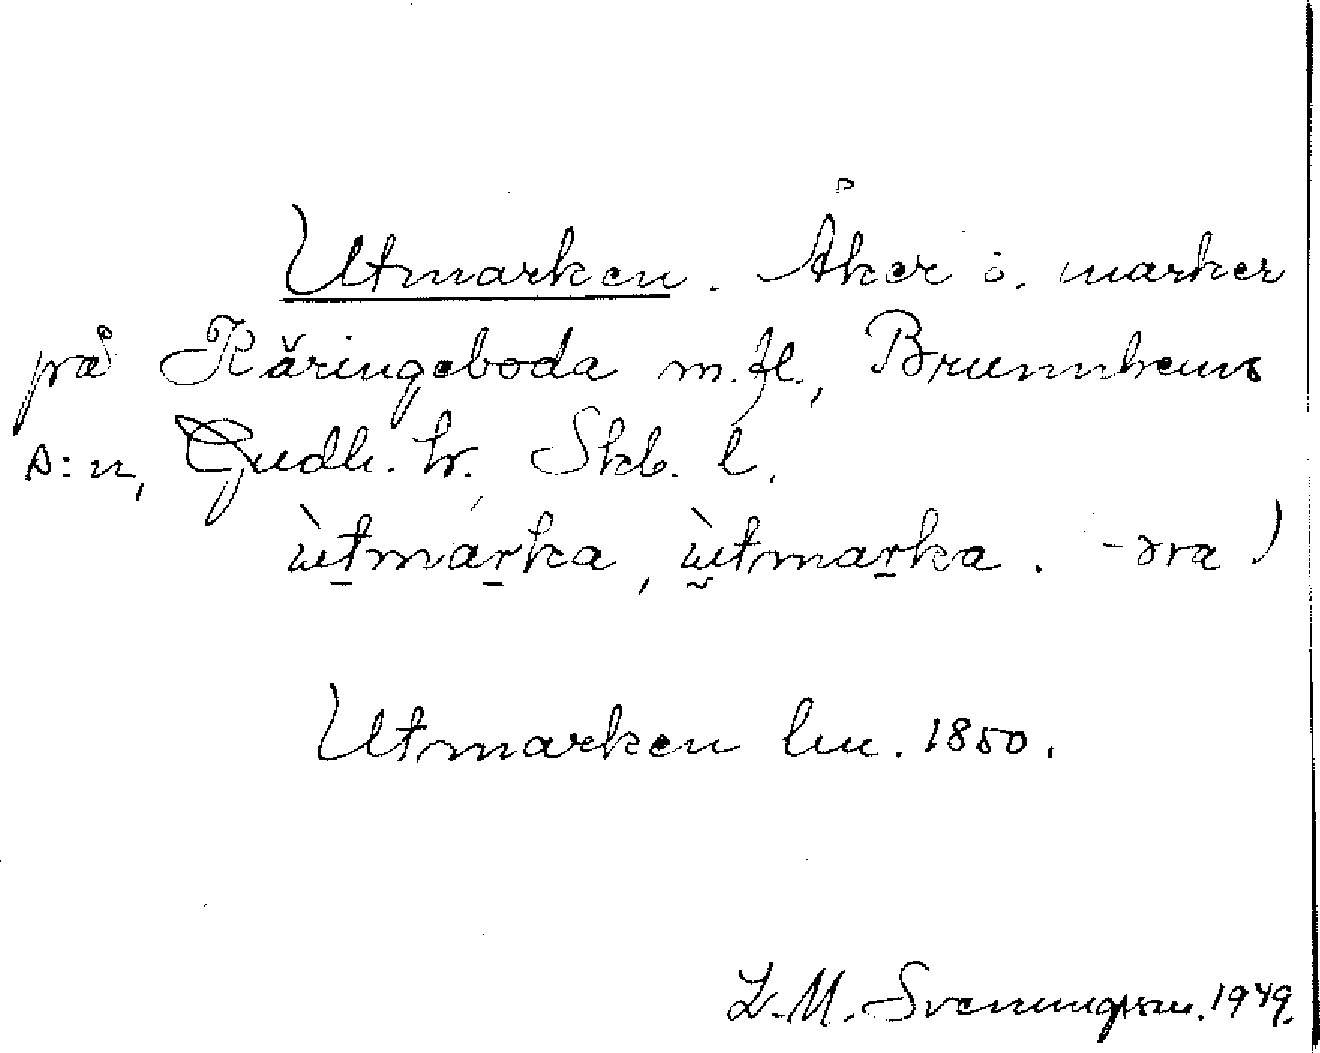 Utmarken. Åker o. marker
på Käringeboda m.fl., Brunnhems
s:n, Gudh. hr. Skb. l.
ùtmárka, ùtmarka. -əra)
Utmarken lm. 1850.
L. M. Svenungsson. 1949.